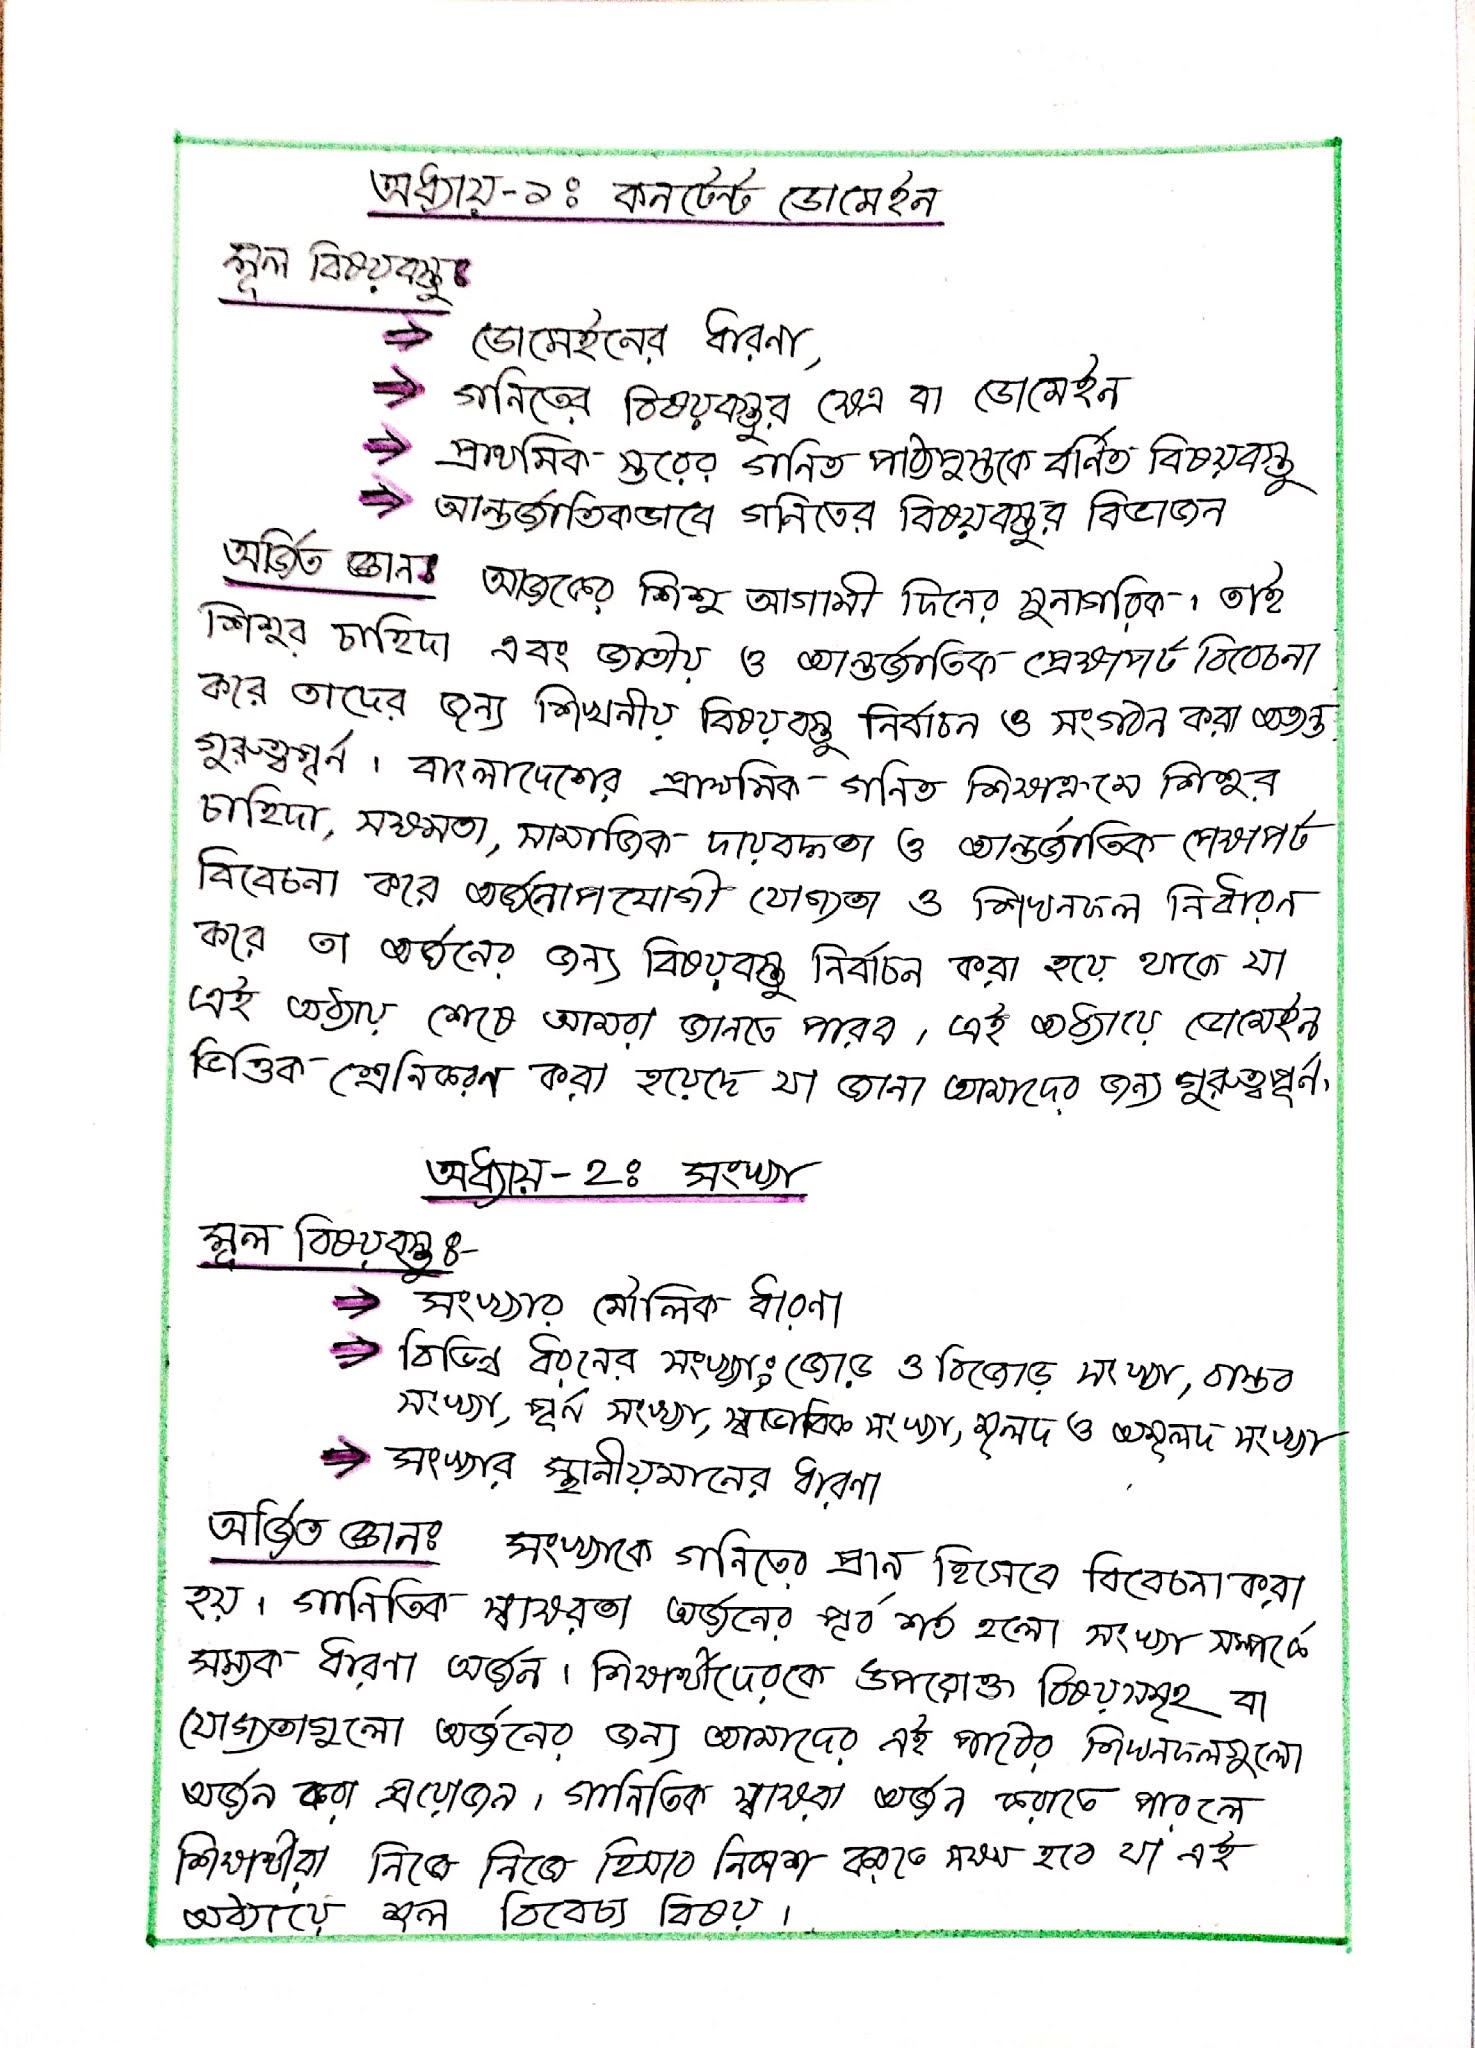 অধ্যায়-১ঃ কনটেন্ট ডোমেইন
মূল বিষয়বস্তুঃ
⇒ ডোমেইনের ধারনা,
⇒ গনিতের বিষয়বস্তুর ক্ষেত্র বা ডোমেইন
⇒ প্রাথমিক স্তরের গনিত পাঠ্যপুস্তকে বর্নিত বিষয়বস্তু
⇒ আন্তর্জাতিকভাবে গনিতের বিষয়বস্তুর বিভাজন
অর্জিত জ্ঞানঃ আজকের শিশু আগামী দিনের সুনাগরিক। তাই
শিশুর চাহিদা এবং জাতীয় ও আন্তর্জাতিক প্রেক্ষাপট বিবেচনা
করে তাদের জন্য শিখনীয় বিষয়বস্তু নির্বাচন ও সংগঠন করা অত্যন্ত
গুরুত্বপূর্ন। বাংলাদেশের প্রাথমিক গনিত শিক্ষাক্রমে শিশুর
চাহিদা, সক্ষমতা, সামাজিক দায়বদ্ধতা ও আন্তর্জাতিক পেক্ষাপট
বিবেচনা করে অর্জনোপযোগী যোগ্যতা ও শিখনফল নির্ধারন
করে তা অর্জনের জন্য বিষয়বস্তু নির্বাচন করা হয়ে থাকে যা
এই অধ্যায় শেষে আমরা জানতে পারব, এই অধ্যায়ে ডোমেইন
ভিত্তিক শ্রেনিকরণ করা হয়েছে যা জানা আমাদের জন্য গুরুত্বপূর্ন।
অধ্যায়-২ঃ সংখ্যা
মূল বিষয়বস্তুঃ-
⇒ সংখ্যার মৌলিক ধারণা
⇒ বিভিন্ন ধরনের সংখ্যাঃ জোড় ও বিজোড় সংখ্যা, বাস্তব
সংখ্যা, পূর্ন সংখ্যা, স্বাভাবিক সংখ্যা, মূলদ ও অমূলদ সংখ্যা
⇒ সংখ্যার স্থানীয়মানের ধারণা
অর্জিত জ্ঞানঃ সংখ্যাকে গনিতের প্রান হিসেবে বিবেচনা করা
হয়। গানিতিক স্বাক্ষরতা অর্জনের পূর্ব শর্ত হলো সংখ্যা সম্পর্কে
সম্যক ধারণা অর্জন। শিক্ষার্থীদেরকে উপরোক্ত বিষয়সমূহ বা
যোগ্যতাগুলো অর্জনের জন্য আমাদের এই পাঠের শিখনফলগুলো
অর্জন করা প্রয়োজন। গানিতিক স্বাক্ষরা অর্জন করাতে পারলে
শিক্ষার্থীরা নিজে নিজে হিসাব নিকাশ করতে সক্ষম হবে যা এই
অধ্যায়ে মূল বিবেচ্য বিষয়।